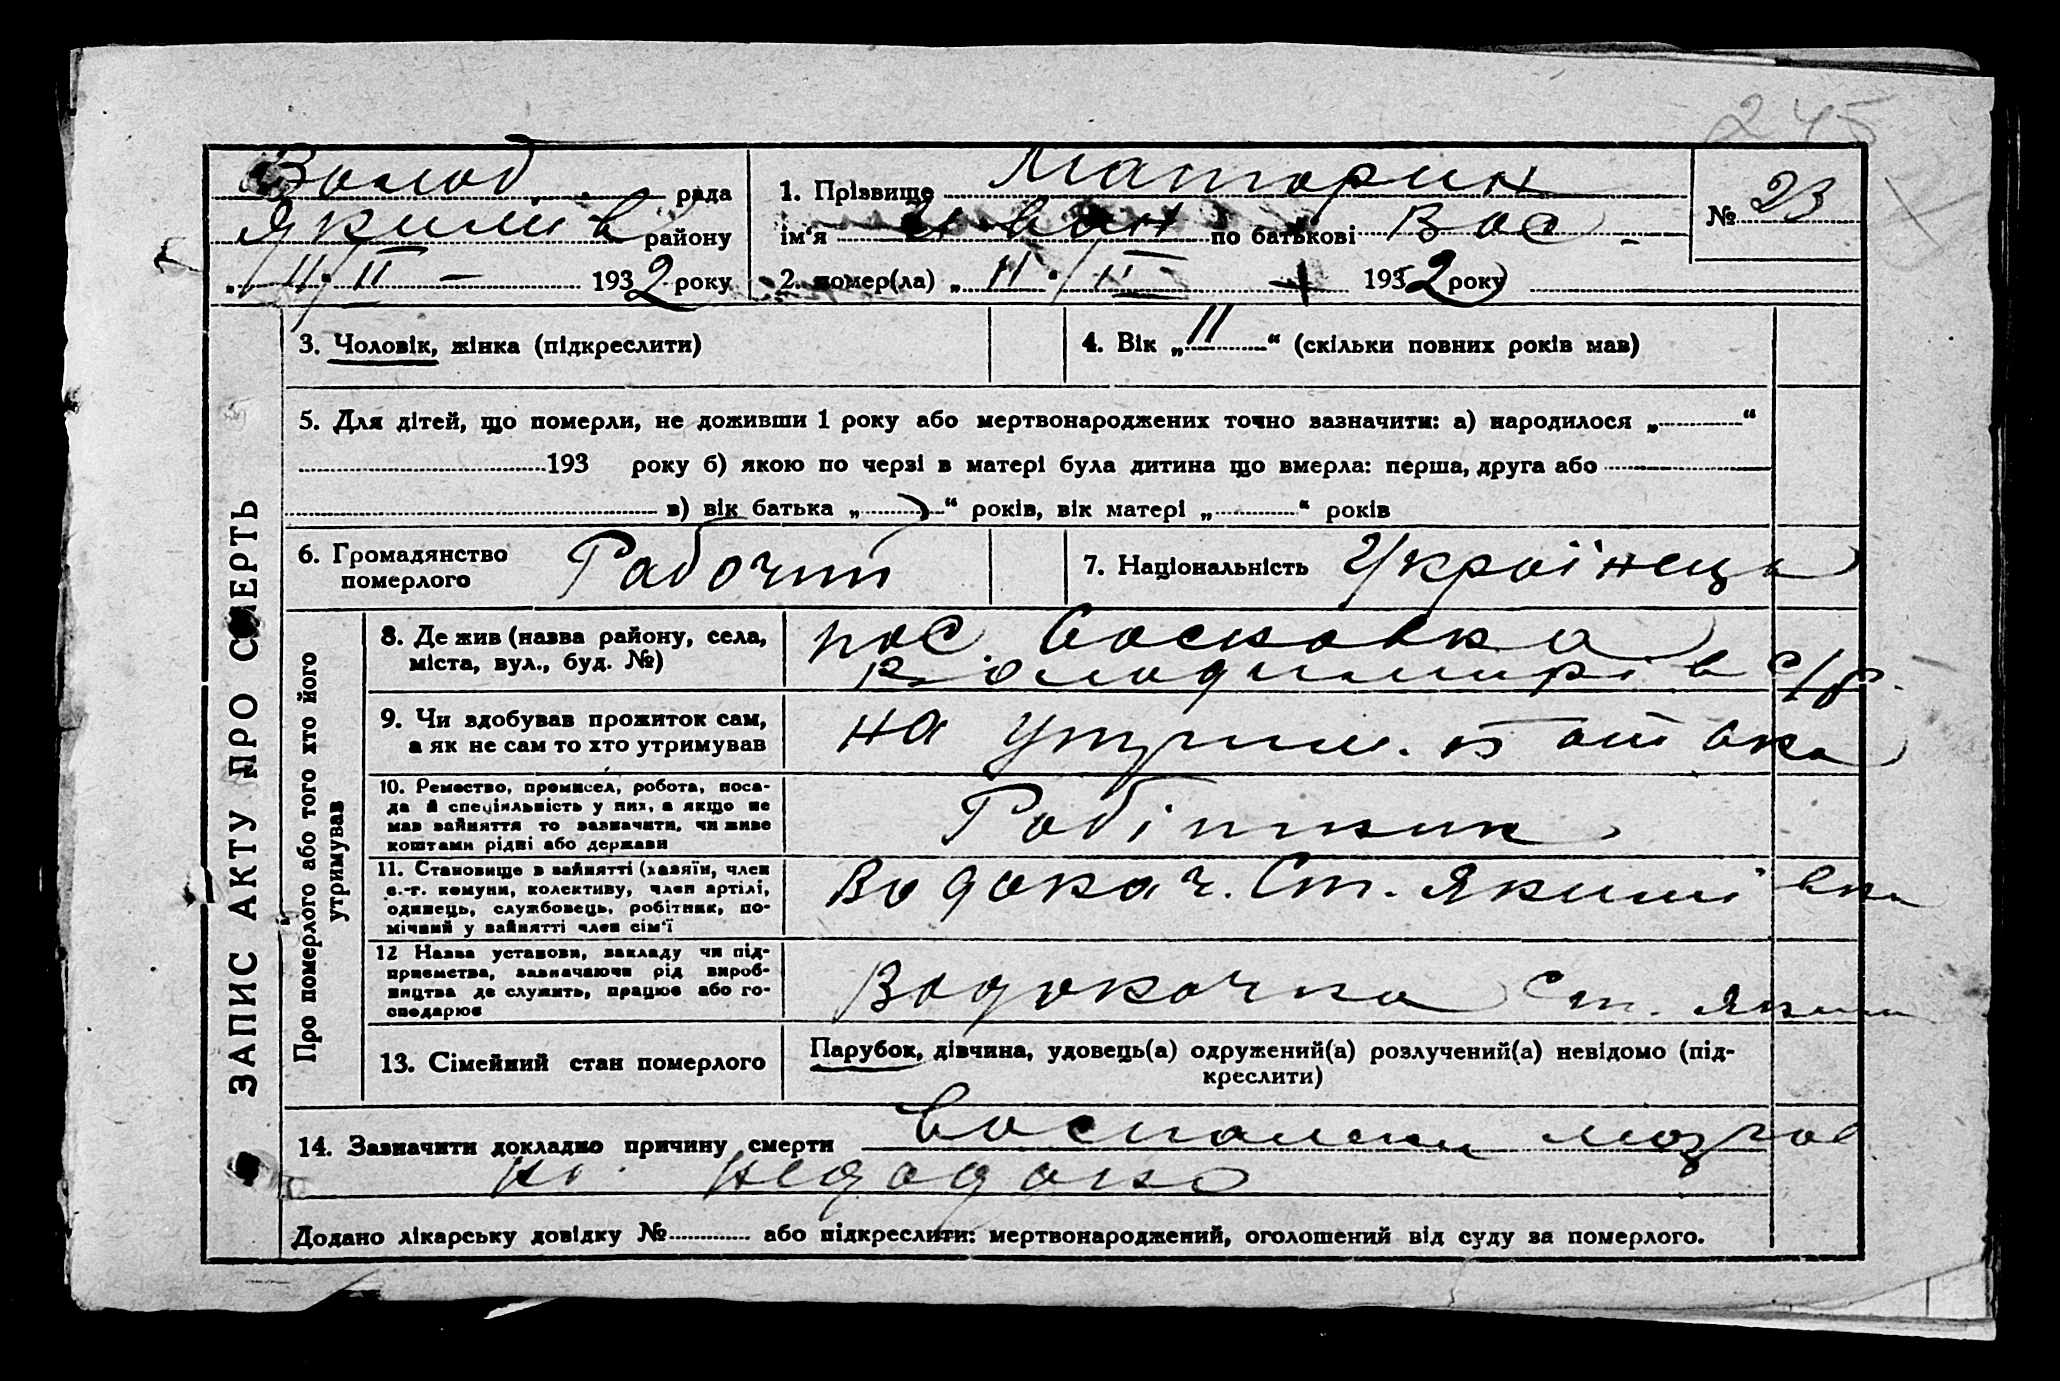 245
Волод. рада
Якимів району
„11/II – 1932 року
1. Прізвище Маторин
ім'я Иван по батькові Вас.
2. помер(ла) „11./II 1932 року
№ 23
3. Чоловік, жінка (підкреслити)
4. Вік „11“ (скільки повних років мав)
5. Для дітей, що померли, не доживши 1 року або мертвонароджених точно зазначити: а) народилося „ “
193 року б) якою по черзі в матері була дитина що вмерла: перша, друга або
в) вік батька „ “ років, вік матері „ “ років
6. Громадянство
померлого
7. Національність Українець
ЗАПИС АКТУ ПРО СМЕРТЬ
Про померлого або того хто його
утримував
8. Де жив (назва району, села,
міста, вул., буд. №)
пос.
Володимирів с/р.
9. Чи здобував прожиток сам,
а як не сам то хто утримував
на утрим. батька
10. Ремество, промисел, робота, поса-
да й спеціяльність у них, а якщо не
мав зайняття то зазначити, чи живе
коштами рідні або держави
Робітник
11. Становище в зайнятті (хазяїн, член
с.-г. комуни, колективу, член артілі,
одинець, службовець, робітник, по-
мічний у зайнятті член сім'ї
Водокач. Ст. Якимівка
12 Назва установи, закладу чи під-
приємства, зазначаючи рід вироб-
ництва де служить, працює або го-
сподарює
Водокачка Ст. Яким
13. Сімейний стан померлого
Парубок, дівчина, удовець(а) одружений(а) розлучений(а) невідомо (під-
креслити)
14. Зазначити докладно причину смерти Воспаления мозгов
Додано лікарську довідку № або підкреслити: мертвонароджений, оголошений від суду за померлого.